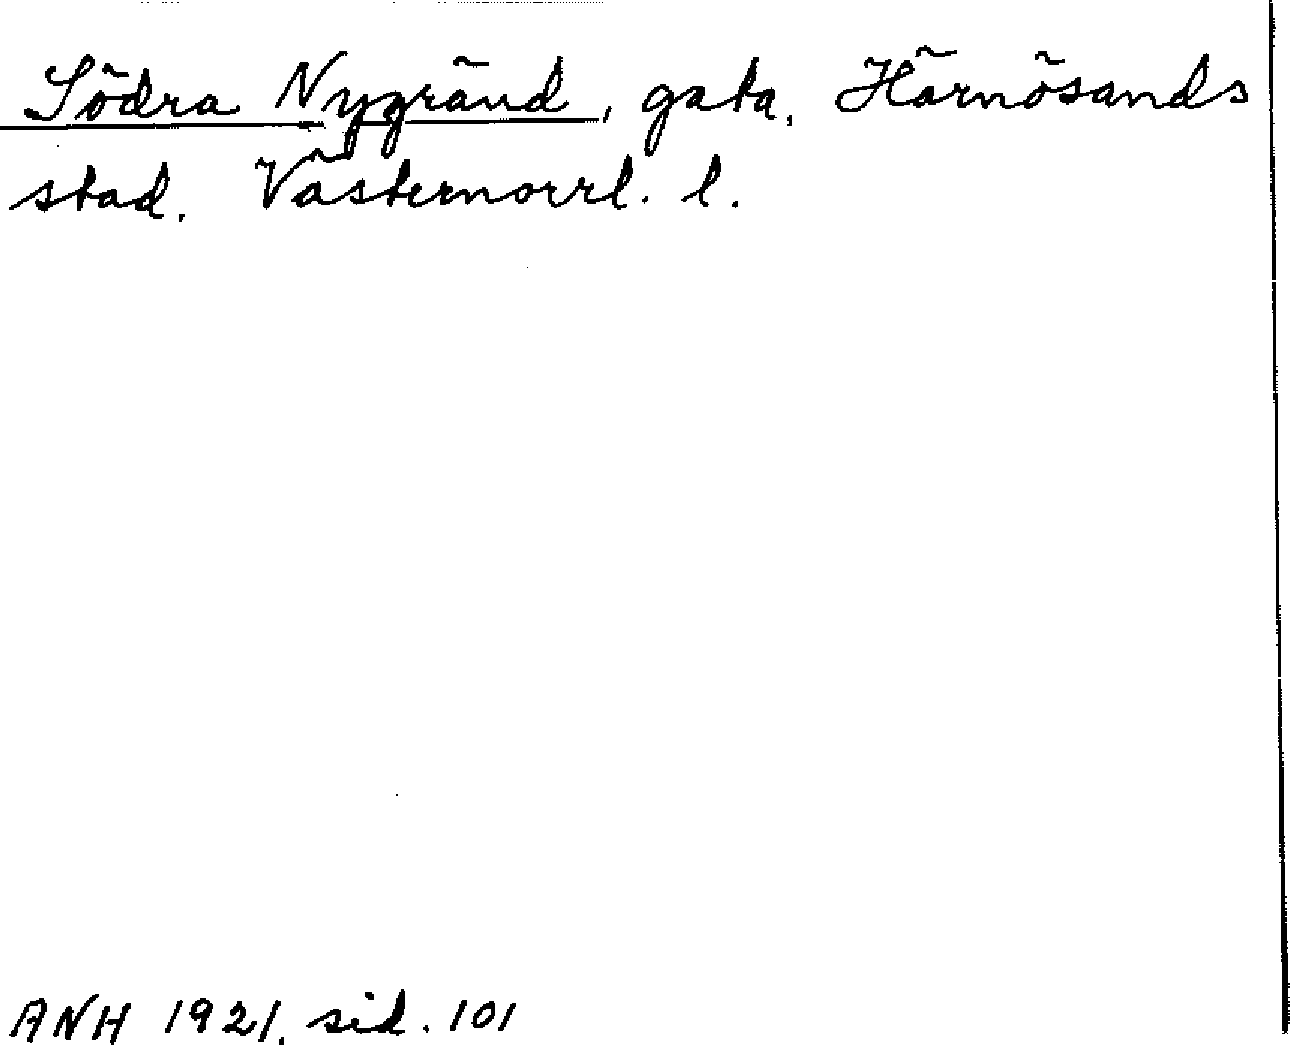 Södra Nygränd, gata, Härnösands
stad, Västernorrl. l.
ANH 1921, sid. 101